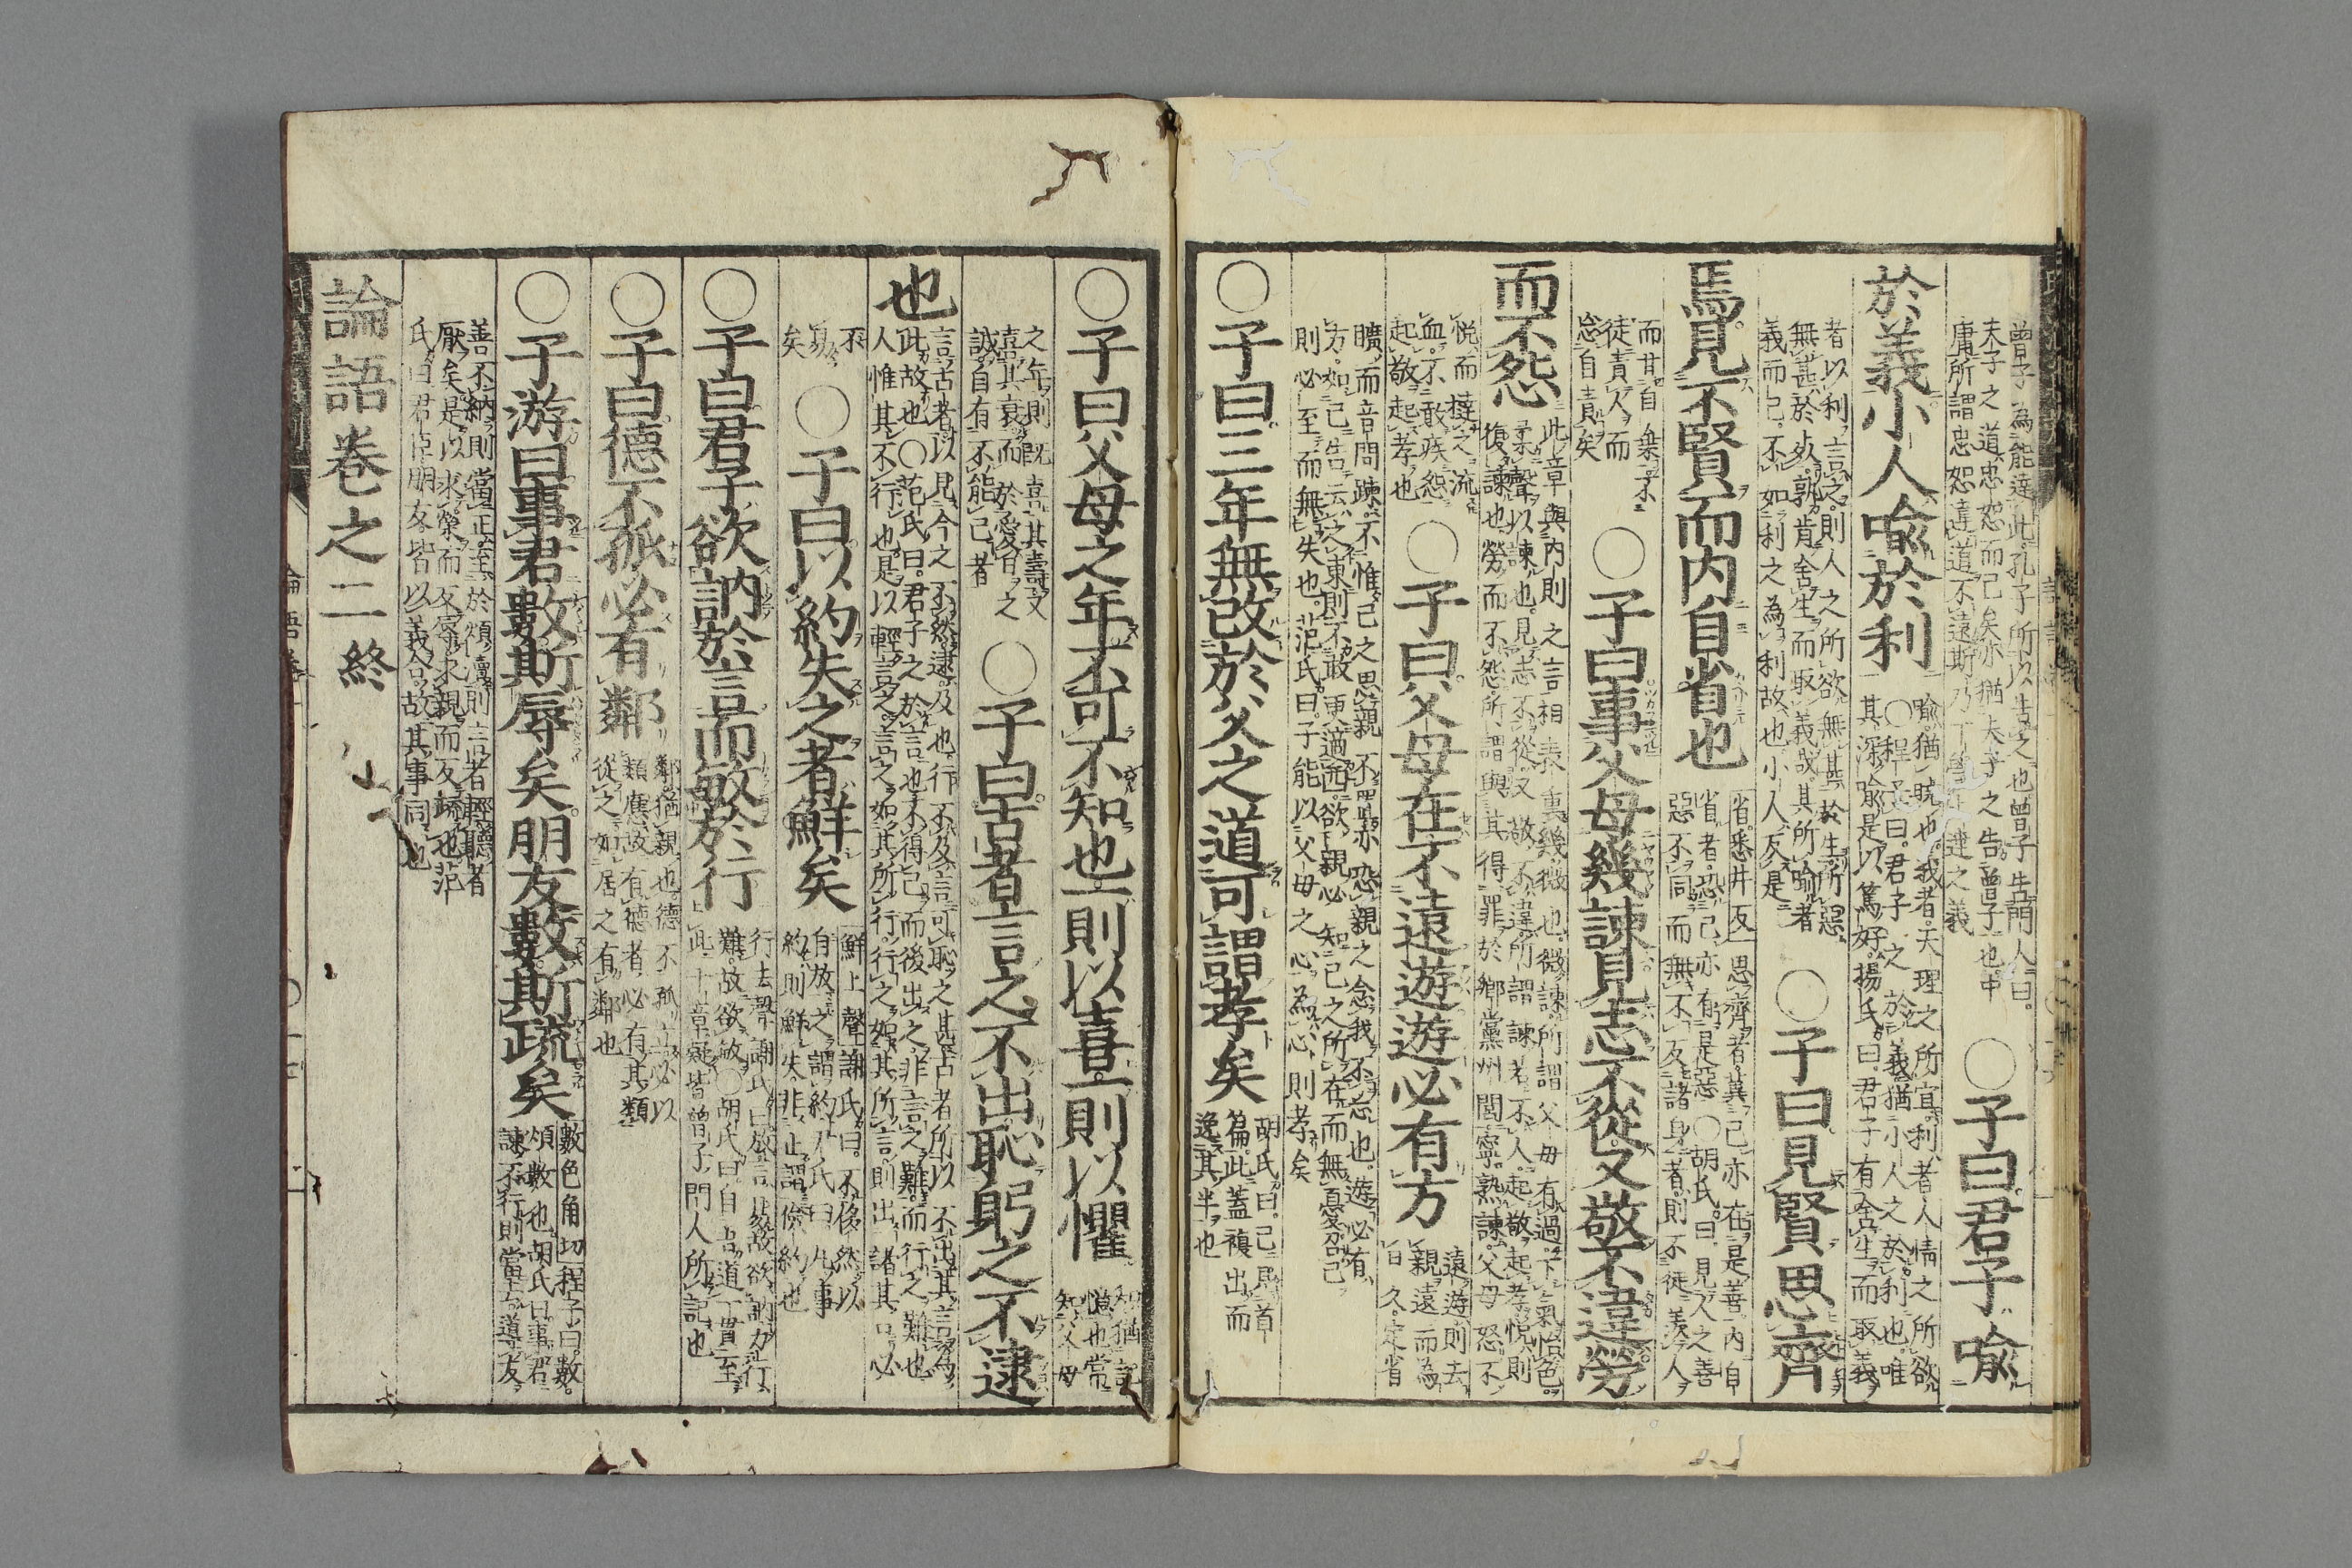 曾子爲能達此孔子所以告之也曾子告門人曰
夫子之道忠恕而已矣亦猶夫子之告曾子也中
庸所謂忠恕違道不遠斯乃下學上達之義
○子曰君子喩
於義小人喩於利
喩猶曉也義者天理之所宜利者人情之所欲
○程子曰君子之於義猶小人之於利也唯
其深喩是以篤好楊氏曰君子有舍生而取義
者以利言之則人之所欲無甚於生所惡
無甚於死孰肯舍生而取義哉其所喩者
義而已不知利之爲利故也小人反是
○子曰見賢思齊
焉見不賢而内自省也
省悉井反
思齊者冀己亦在是善内自
省者恐己亦有是惡○胡氏曰見人之善
惡不同而無不反諸身者則不徒羨人
而甘自棄不
徒責人而
忘自責矣
○子曰事父母幾諫見志不從又敬不違勞
而不怨
此章與内則之言相表裏幾微也微諫所謂父母有過下氣怡色
柔聲以諫也見志不從又敬不違所謂諫若不入起敬起孝悅則
復諫也勞而不怨所謂與其得罪於鄕黨州閭寧熟諫父母怒不
悅而撻之流
血不敢疾怨
起敬起孝也
○子曰父母在不遠遊遊必有方
遠遊則去
親遠而爲
日久定省
曠而音問疎不惟己之思親不置亦恐親之念我不忘也遊必有
方如己告云之東則不敢更適西欲親必知己之所在而無憂召己
則必至而無失也范氏曰子能以父母之心爲心則孝矣
○子曰三年無改於父之道可謂孝矣
胡氏曰已見首
篇此蓋複出而
逸其半也
○子曰父母之年不可不知也一則以喜一則以懼
知猶記
憶也常
知父母
之年則既喜其壽又
喜其衰而於愛日之
誠自有不能已者
○子曰古者言之不出恥躬之不逮
也
言古者以見今之不然逮及也行不及言可恥之甚古者所以不出其言爲
此故也○范氏曰君子之於言也不得已而後出之非言之難而行之難也
人惟其不行也是以輕言之言之如其所行行之如其所言則出諸其口必
不
易
矣
○子曰以約失之者鮮矣
鮮上聲謝氏曰不侈然以
自放之謂約尹氏曰凡事
約則鮮失非止謂儉約也
○子曰君子欲訥於言而敏於行
行去聲謝氏曰放言易故欲訥力行
難故欲敏○胡氏曰自吾道一貫至
此十章疑皆曾子門人所記也
○子曰德不孤必有鄰
鄰猶親也德不孤立必以
類應故有德者必有其類
從之如居之有鄰也
○子游曰事君數斯辱矣朋友數斯疏矣
數色角切程子曰數
煩數也胡氏曰事君
諫不行則當去導友
善不納則當止至於煩瀆則言者輕聽者
厭矣是以求榮而反辱求親而反疏也范
氏曰君臣朋友皆以義合故其事同也
論語卷之二終